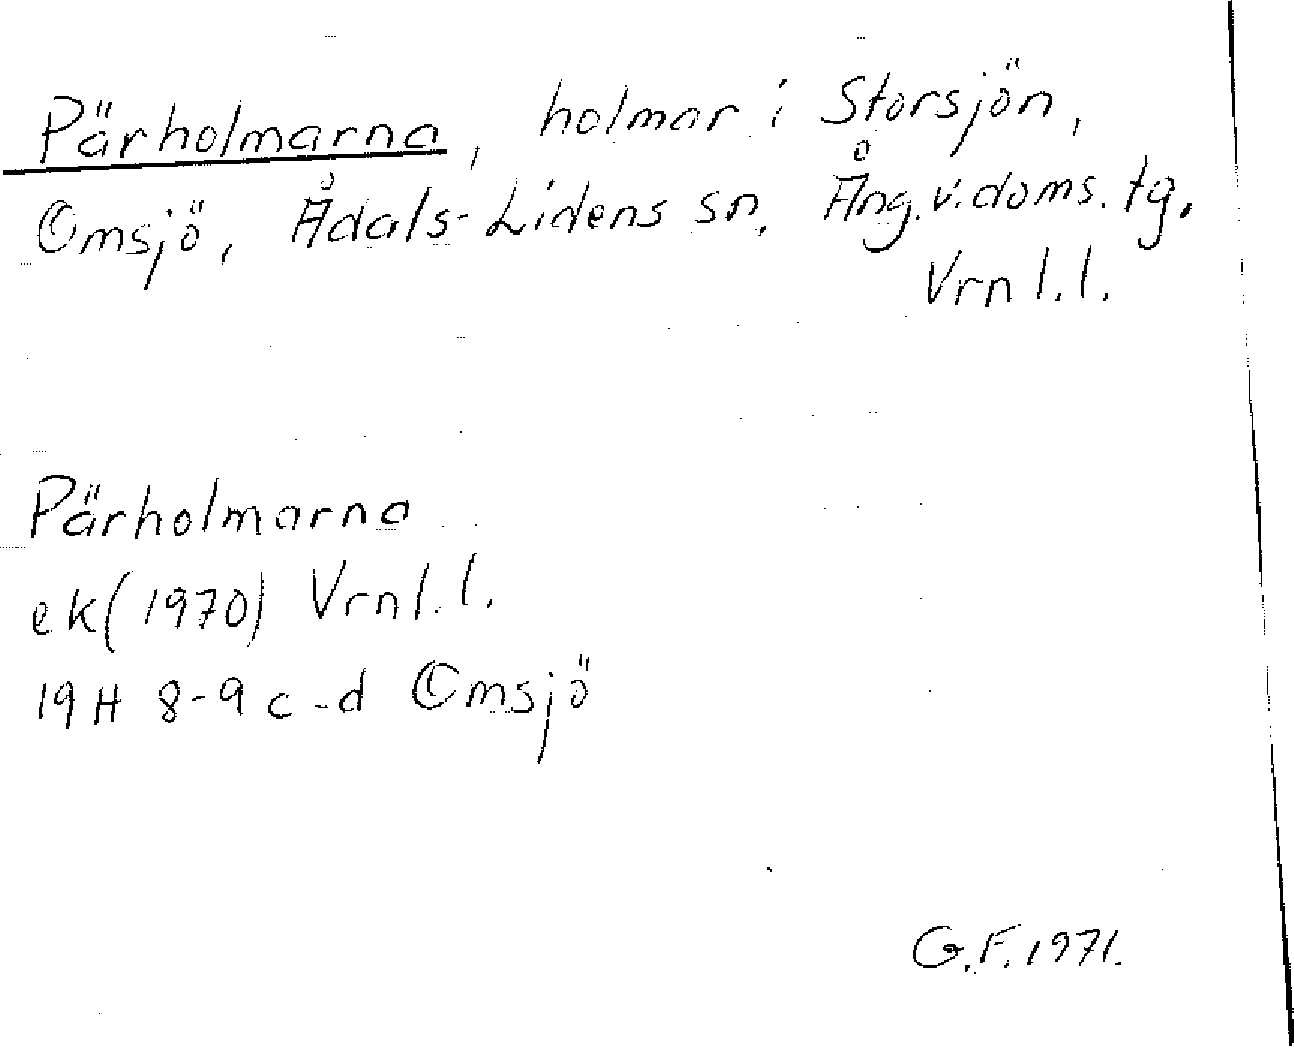 Pärholmarna, holmar i Storsjön,
Omsjö, Ådals-Lidens sn, Ång.v.doms.tg.
Vrn l.l.
Pärholmarna
ek(1970) Vrnl.l.
19H 8-9 c-d Omsjö
G.F.1971.